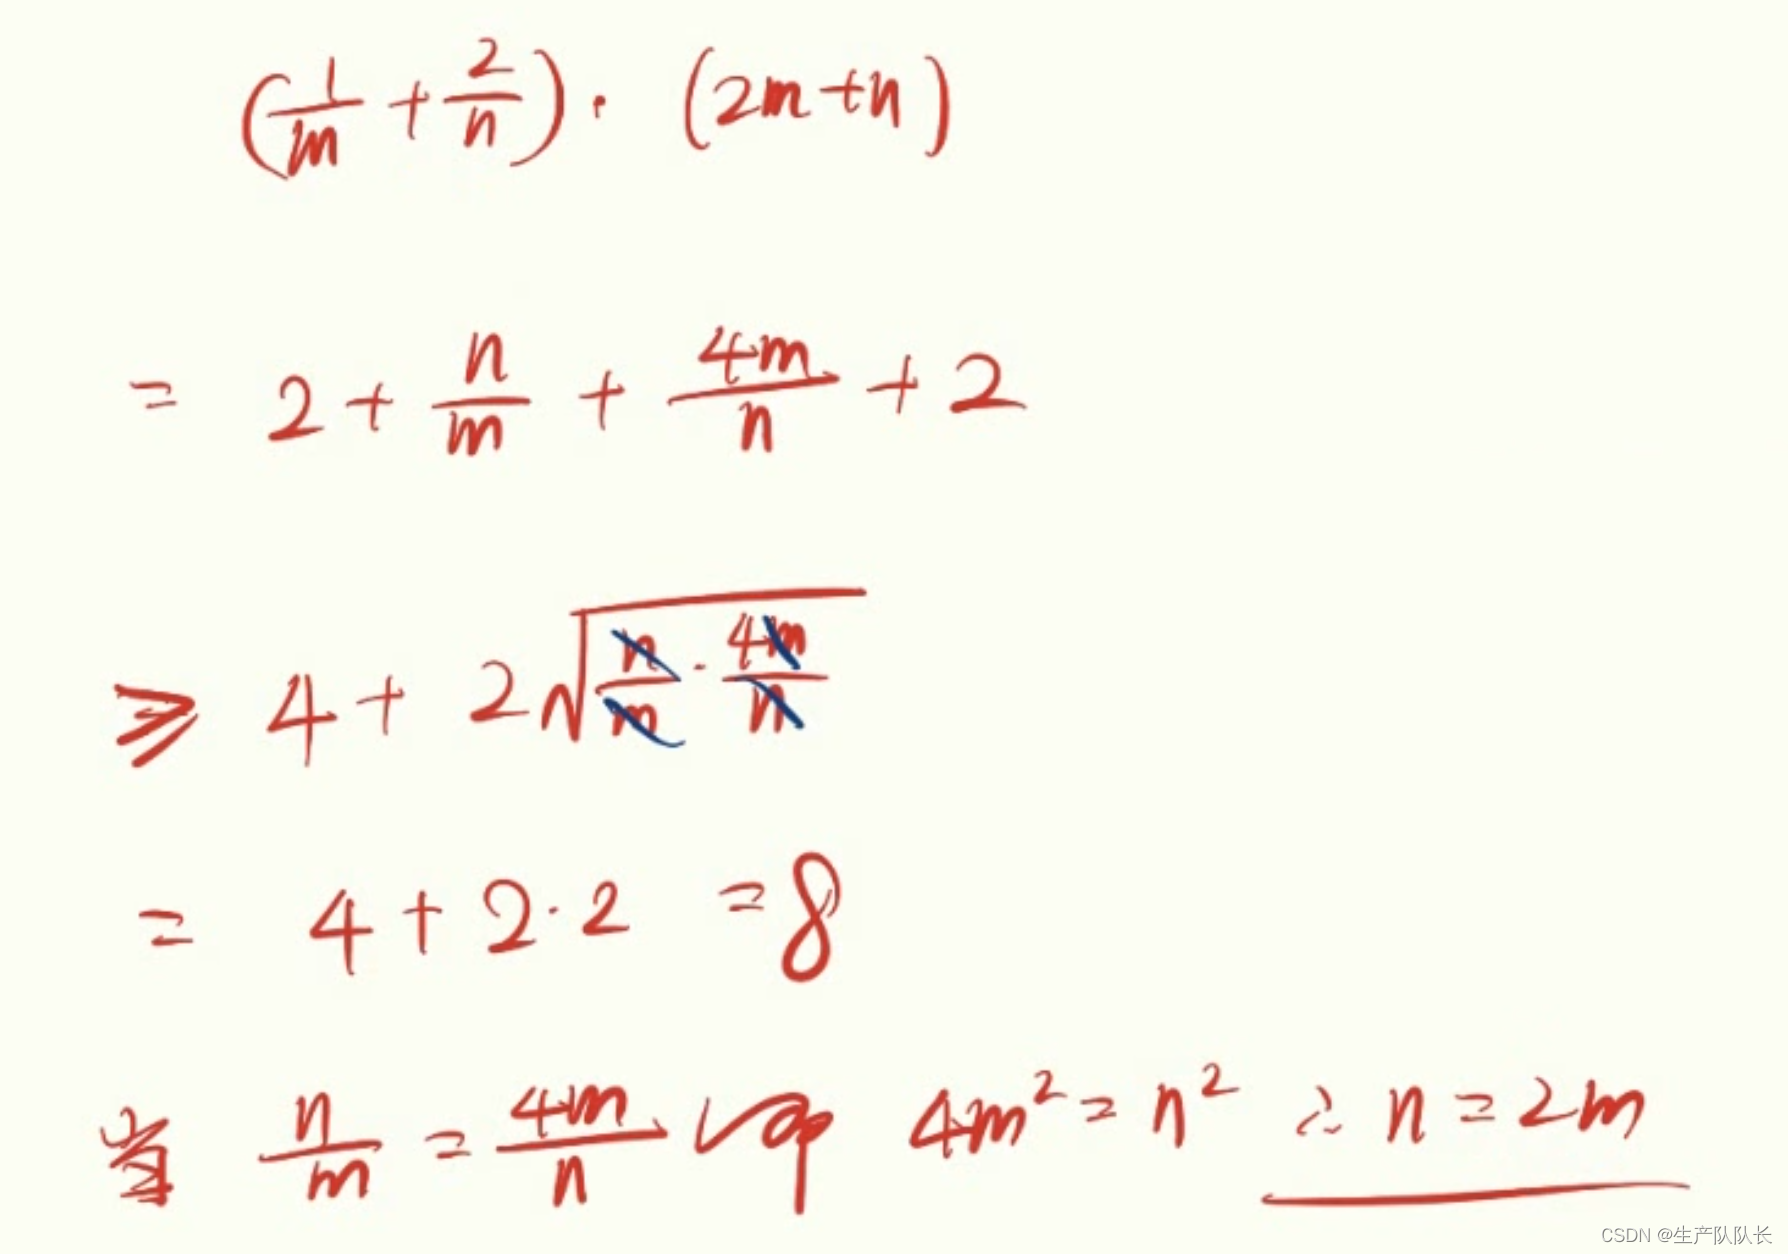 (1/m + 2/n) · (2m+n)
= 2 + n/m + 4m/n + 2
≥ 4 + 2√(n/m · 4m/n)
= 4 + 2·2 = 8
当 n/m = 4m/n 即 4m² = n² ∴ n = 2m
CSDN @生产队队长